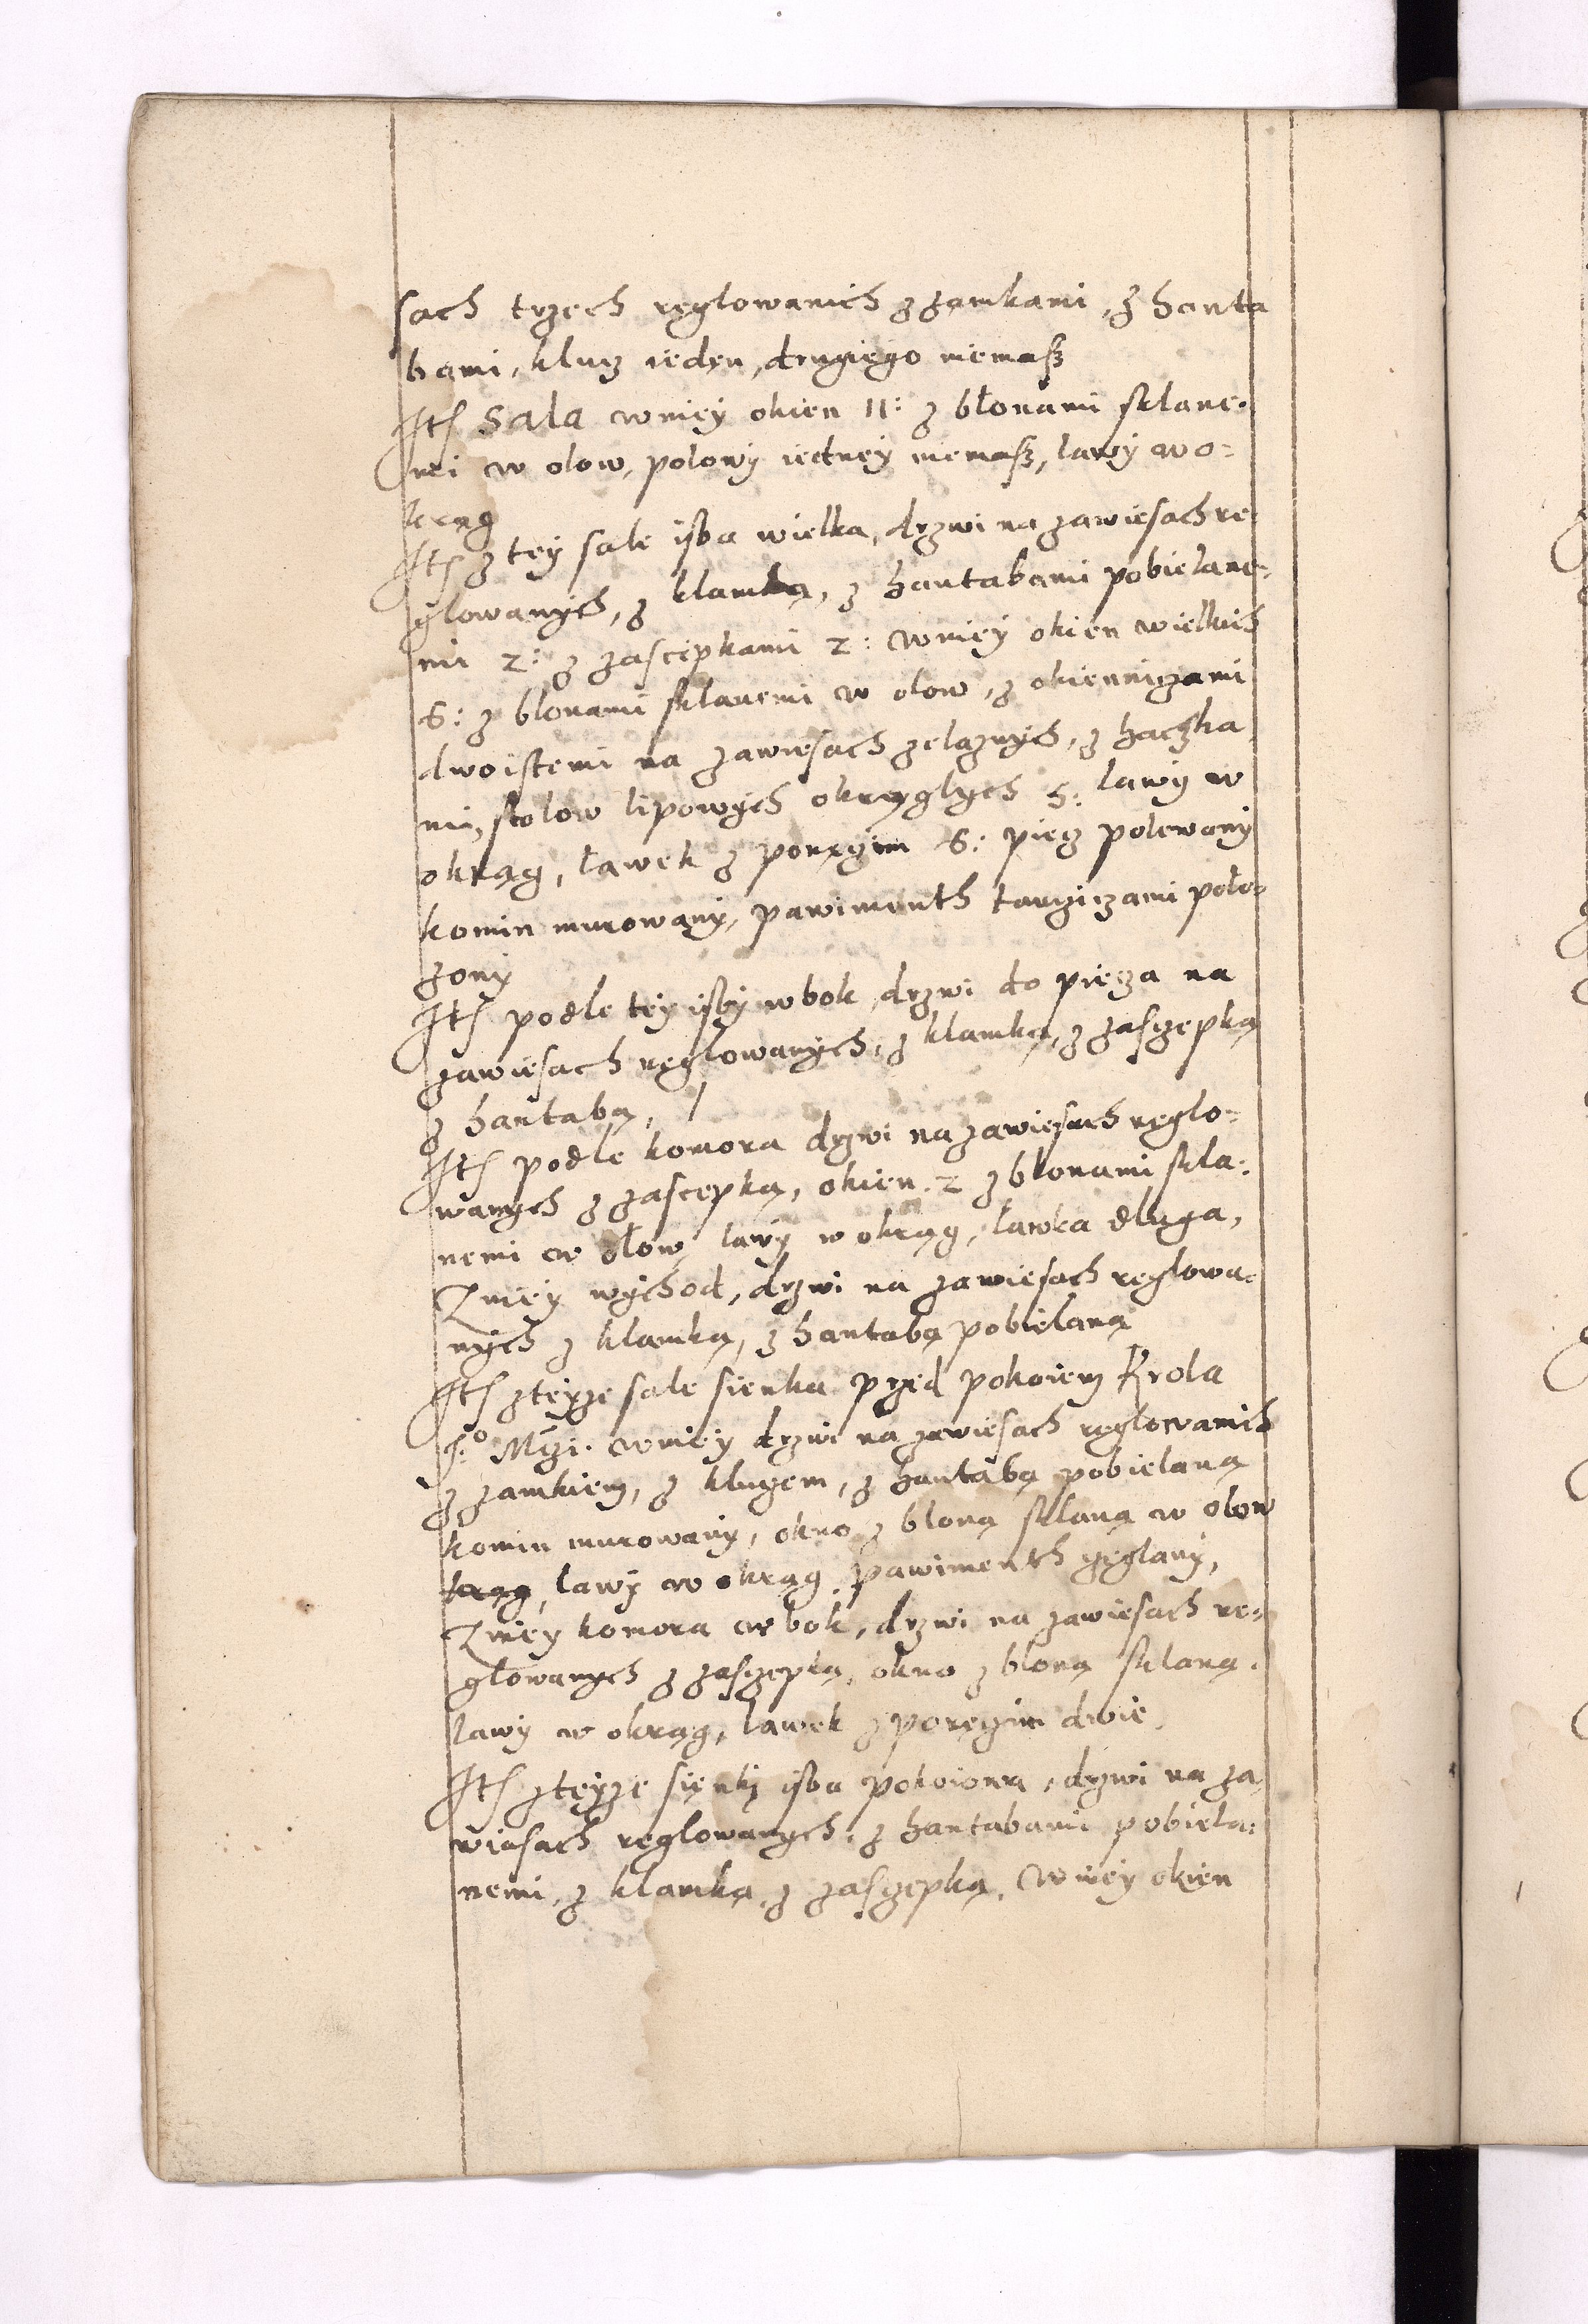 sach trzech reglowanich z zamkami, z hanta
bami, klucz ieden, drugiego niemasz
Itē Sala w niey okien 11: z błonami sklane-
mi w olow, polowy iedney niemasz, lawy w o=
krąg
Itē z tey sale isba wielka, drzwi na zawiesach re-
glowanych, z klamką, z hantabami pobielane-
mi 2: z zascepkami 2: w niey okien wielkich
6: z blonami sklanemi w olow, z okiennicami
dwoistemi na zawiesach zelaznych, z haczka
mi, stolow lipowych okrąglych 5: lawy w
okrąg, ławek z poręczim 6: piec polewany
komin murowany, pawimenth tarcziczami poło-
zony
Itē podle tey isby w bok, drzwi do pieca na
zawiesach reglowanych, z klamką, z zasczepką
z hantabą, /
Itē podle komora drzwi na zawiesach reglo=
wanych z zascepką, okien 2 z blonami skla:
nemi w ołow, lawy w okrąg, lawka dluga,
Z niey wychod, drzwi na zawiesach reglowa=
nych z klamką, z hantabą pobielaną
Itē z teyze sale sienka przed pokoiem Krola
Je° Mczi. w niey drzwi na zawiesach reglowanich
z zamkiem, z kluczem, z hantabą pobielaną
komin murowany, okno z bloną sklaną w olow
krąg, lawy w okrąg, pawimenth czeglany,
Z niey komora w bok, drzwi na zawiesach re=
glowanych z zasczepką, okno z bloną sklaną.
lawy w okrąg, lawek z poręczim dwie,
Itē z teyze sienki isba pokoiowa, drzwi na za
wiasach reglowanych, z hantabami pobiela:
nemi, z klamką, z zasczepką, w niey okien